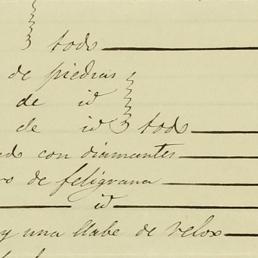 todo
de piedras
de id
de id todo
con diamantes
de feligrana
id
y una llabe de relox